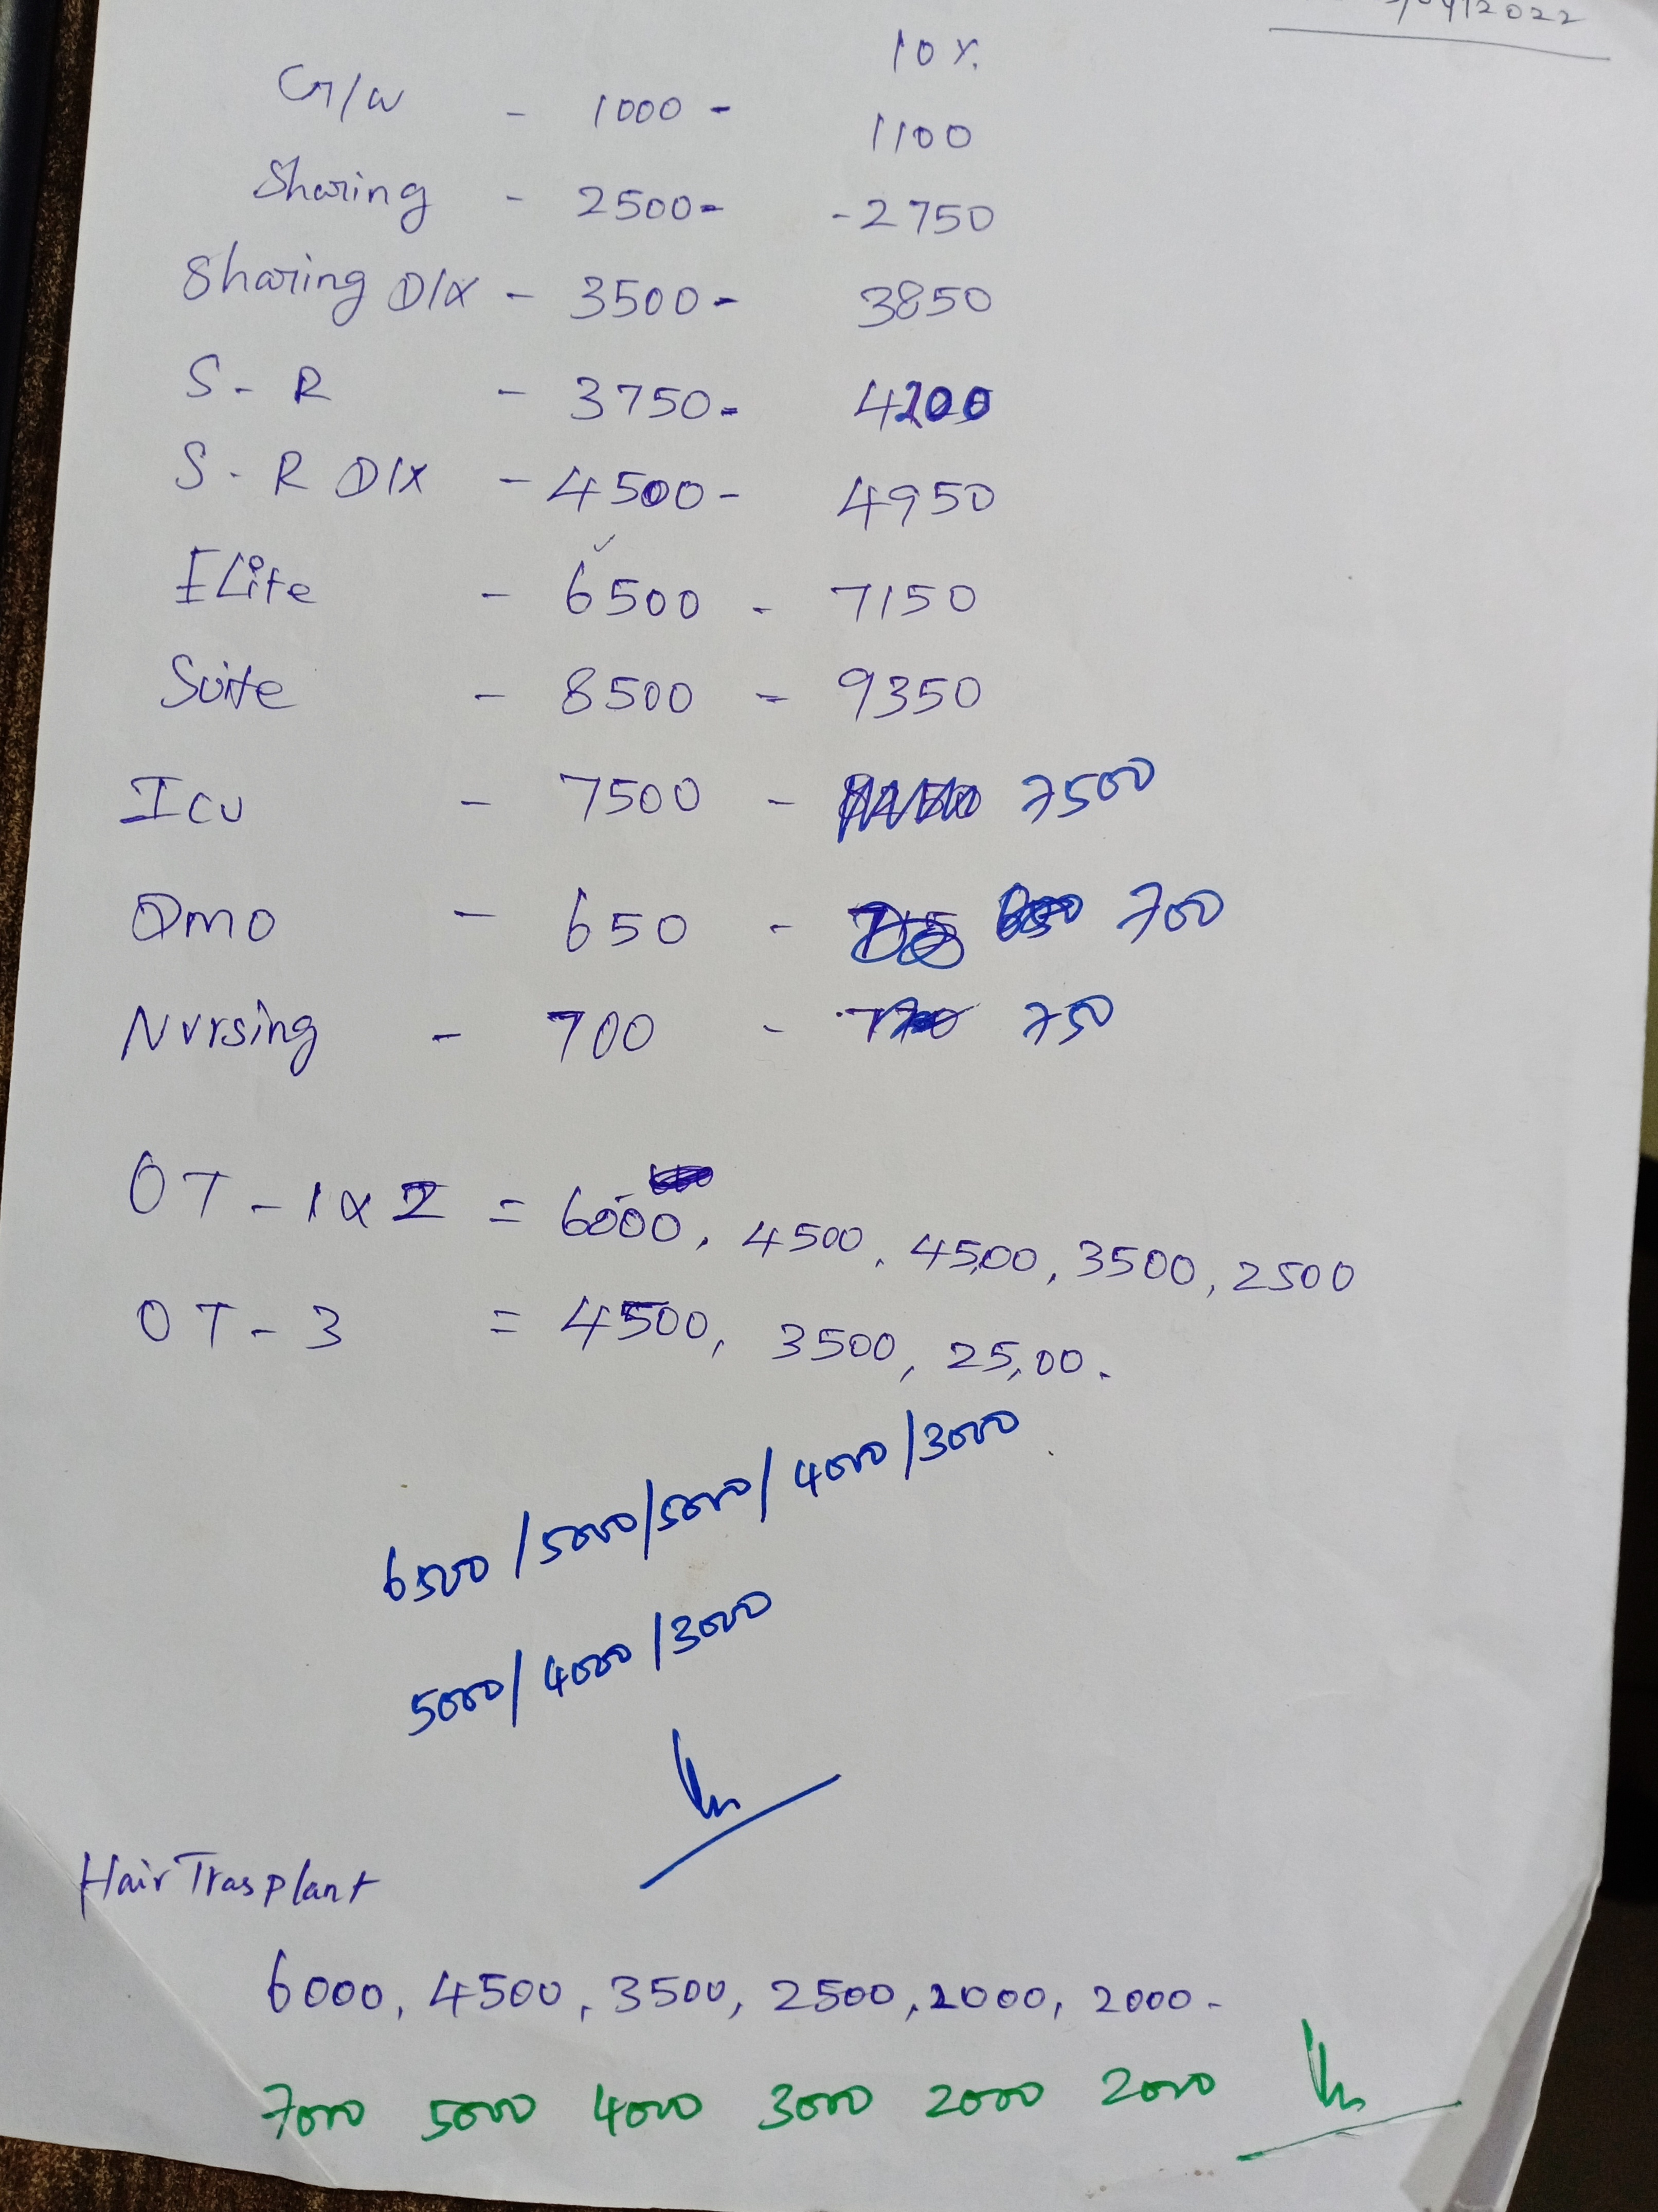 /04/2022
10%
G/W - 1000 - 1100
Sharing - 2500 - - 2750
Sharing Dlx - 3500 - 3850
S - R - 3750 - 4200
S - R Dlx - 4500 - 4950
ELite - 6500 - 7150
Suite - 8500 - 9350
ICU - 7500 - 7500
Dmo - 650 - 700
Nursing - 700 - 750
OT - 1 & 2 = 6000, 4500, 4500, 3500, 2500
OT - 3 = 4500, 3500, 25,00.
6500/5000/5000/4000/3000
5000/4000/3000
Hair Trasplant
6000, 4500, 3500, 2500, 2000, 2000 -
7000 5000 4000 3000 2000 2000